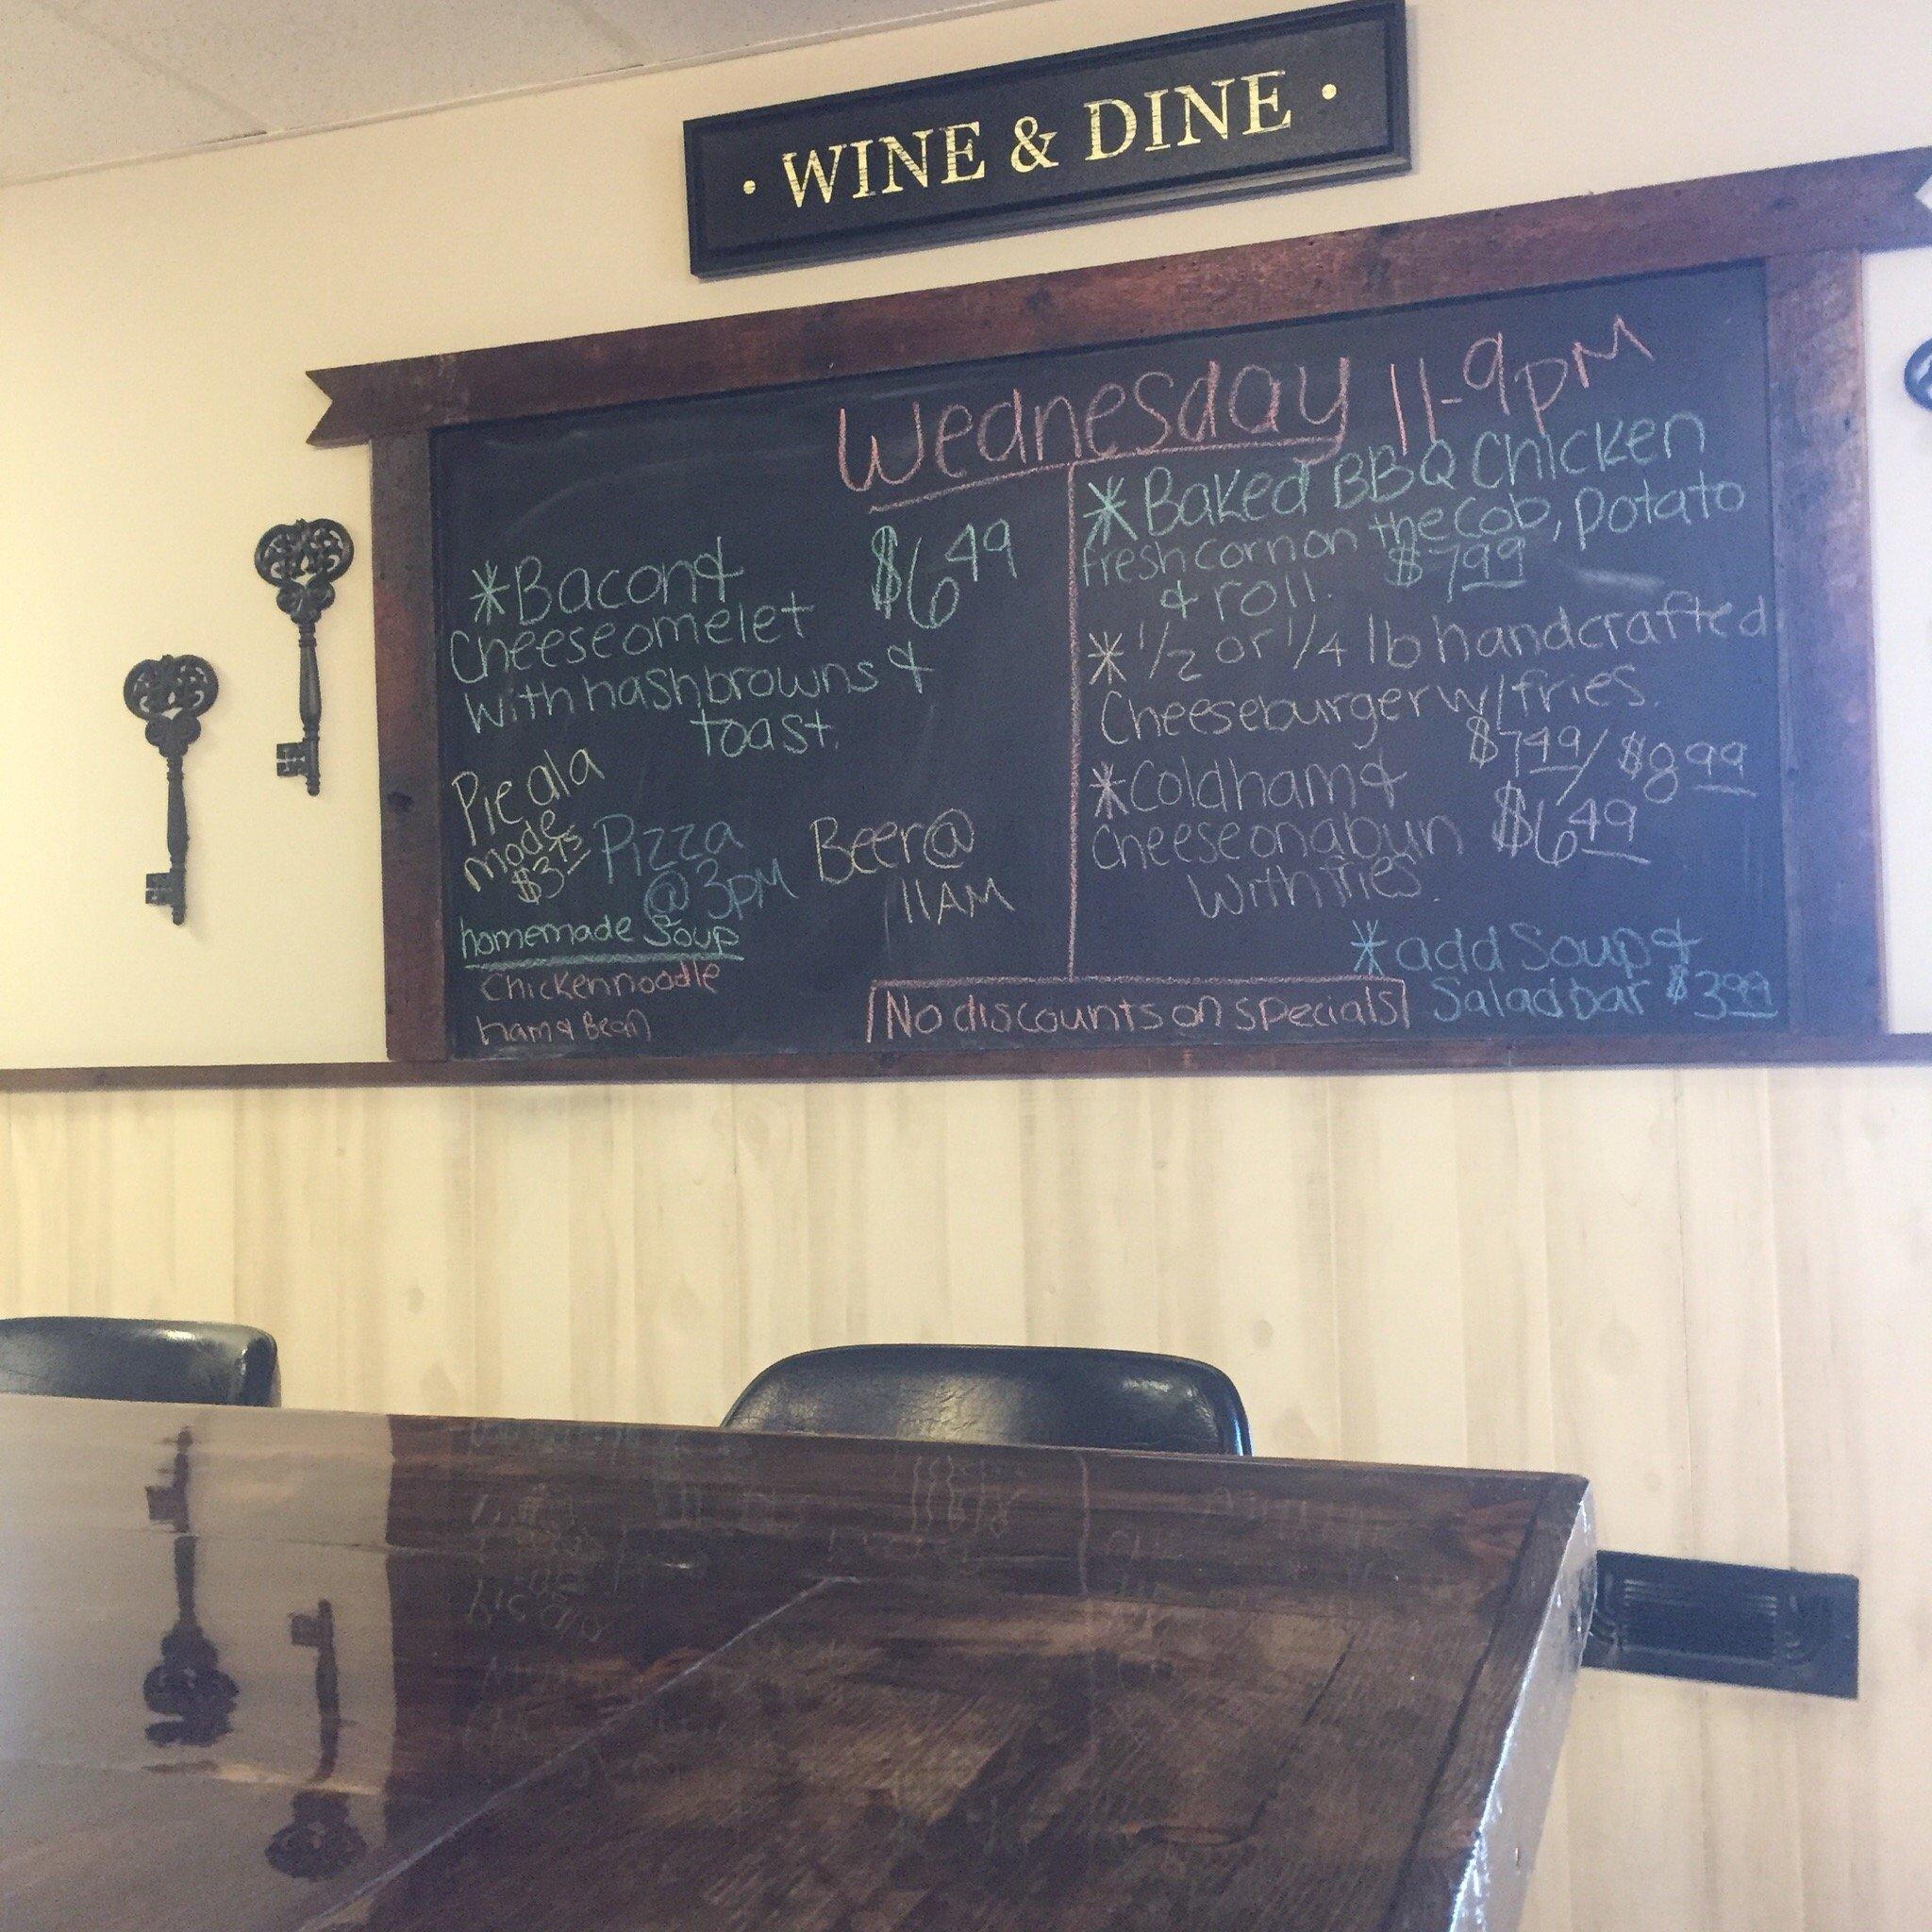 • WINE & DINE •
Wednesday 11-9pM
*Bacon &
Cheese omelet $6.49
with hashbrowns &
toast.
Pie ala
mode
$3.75
Pizza
@ 3pM
Beer @
11AM
homemade Soup
Chicken noodle
ham & Bean
*Baked BBQ Chicken
fresh corn on the cob, potato
& roll. $7.99
*1/2 or 1/4 lb handcrafted
Cheeseburger w/fries.
$7.49/$8.99
*Cold ham &
Cheese on a bun $6.49
with fries.
*add Soup &
Salad bar $3.99
No discounts on specials